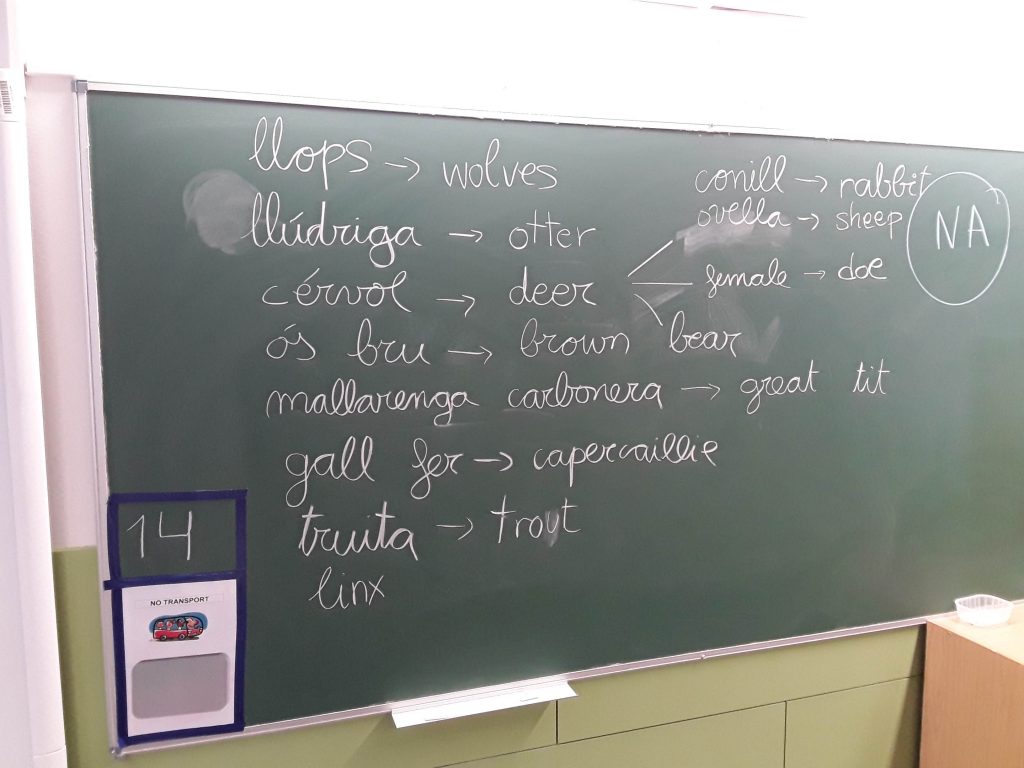 llops → wolves
conill → rabbit
ovella → sheep
NA
llúdriga → otter
cérvol → deer
female → doe
ós bru → brown bear
mallarenga carbonera → great tit
gall fer → capercaillie
truita → trout
linx
14
NO TRANSPORT